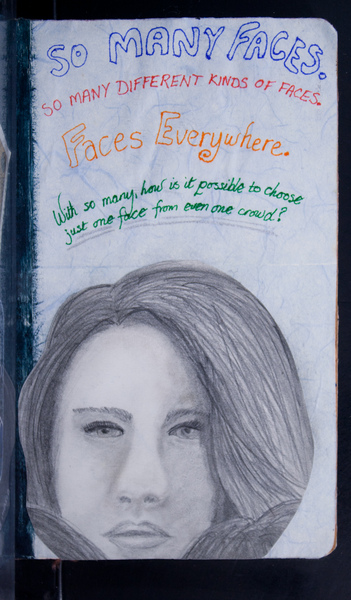 SO MANY FACES.
SO MANY DIFFERENT KINDS OF FACES.
Faces Everywhere.
With so many, how is it possible to choose
just one face from even one crowd?